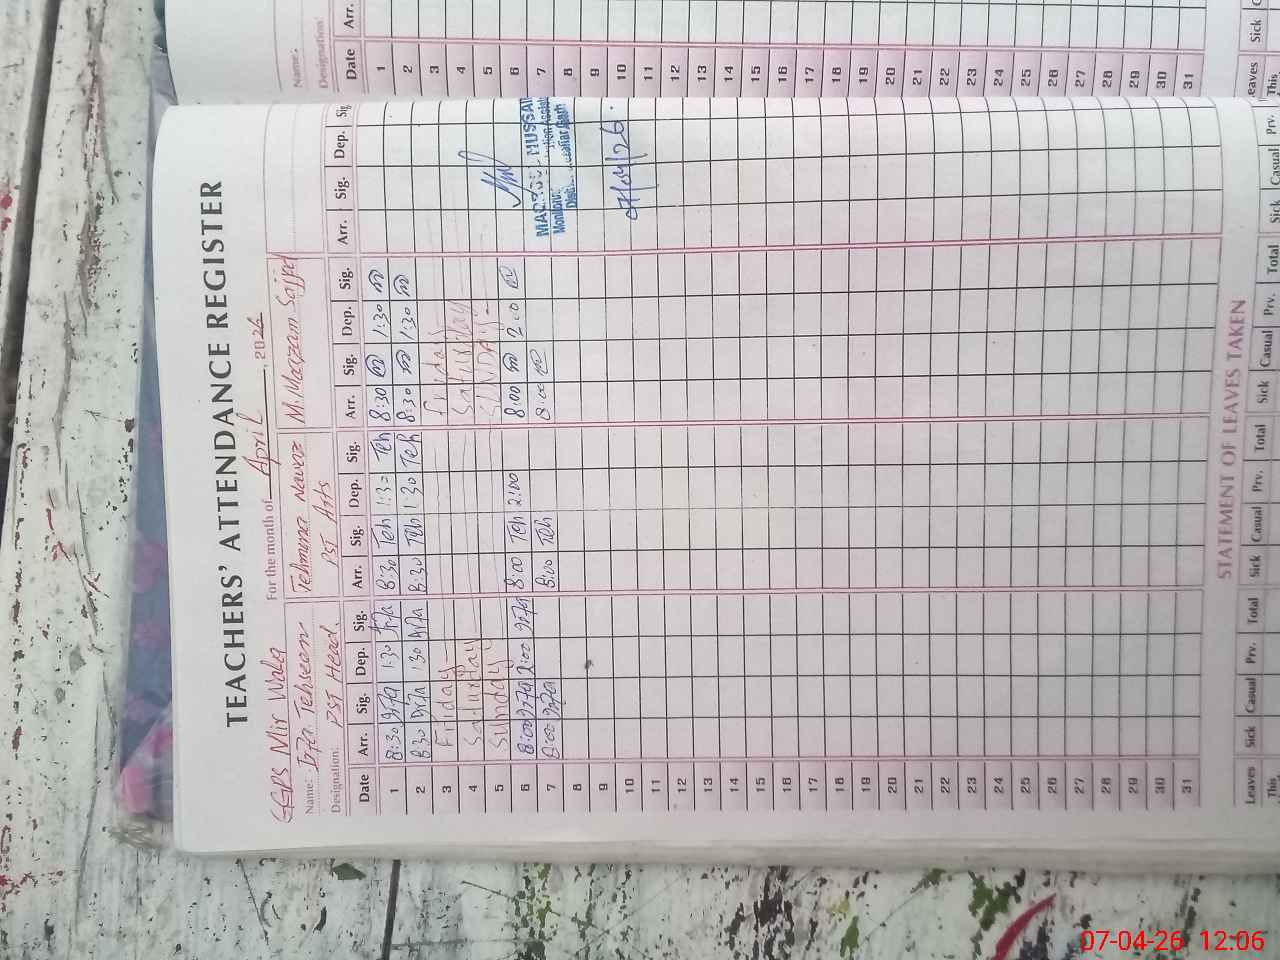 TEACHERS' ATTENDANCE REGISTER
GGPS Mir Wala For the month of April, 2026
Name: Irfa Tehseen Tehmina Nawaz M. Maazam Sajjad
Designation: PST Head. PST Arts
Date Arr. Sig. Dep. Sig. Arr. Sig. Dep. Sig. Arr. Sig. Dep. Sig. Arr. Sig. Dep. Sig.
1 8:30 Irfa 1:30 Irfa 8:30 Teh 1:30 Teh 8:30 1:30
2 8:30 Irfa 1:30 Irfa 8:30 Teh 1:30 Teh 8:30 1:30
3 Friday Friday
4 Saturday Saturday
5 Sunday SUNDAY
6 8:00 Irfa 2:00 Irfa 8:00 Teh 2:00 8:00 2:00
7 8:00 Irfa 8:00 Teh 8:00
8
9
10 07/04/26.
11
12
13
14
15
16
17
18
19
20
21
22
23
24
25
26
27
28
29
30
31
STATEMENT OF LEAVES TAKEN
Leaves Sick Casual Prv. Total Sick Casual Prv. Total Sick Casual Prv. Total Sick Casual Prv.
This
Name:
Designation:
Date Arr.
1
2
3
4
5
6
7
8
9
10
11
12
13
14
15
16
17
18
19
20
21
22
23
24
25
26
27
28
29
30
31
Leaves Sick
This
07-04-26 12:06